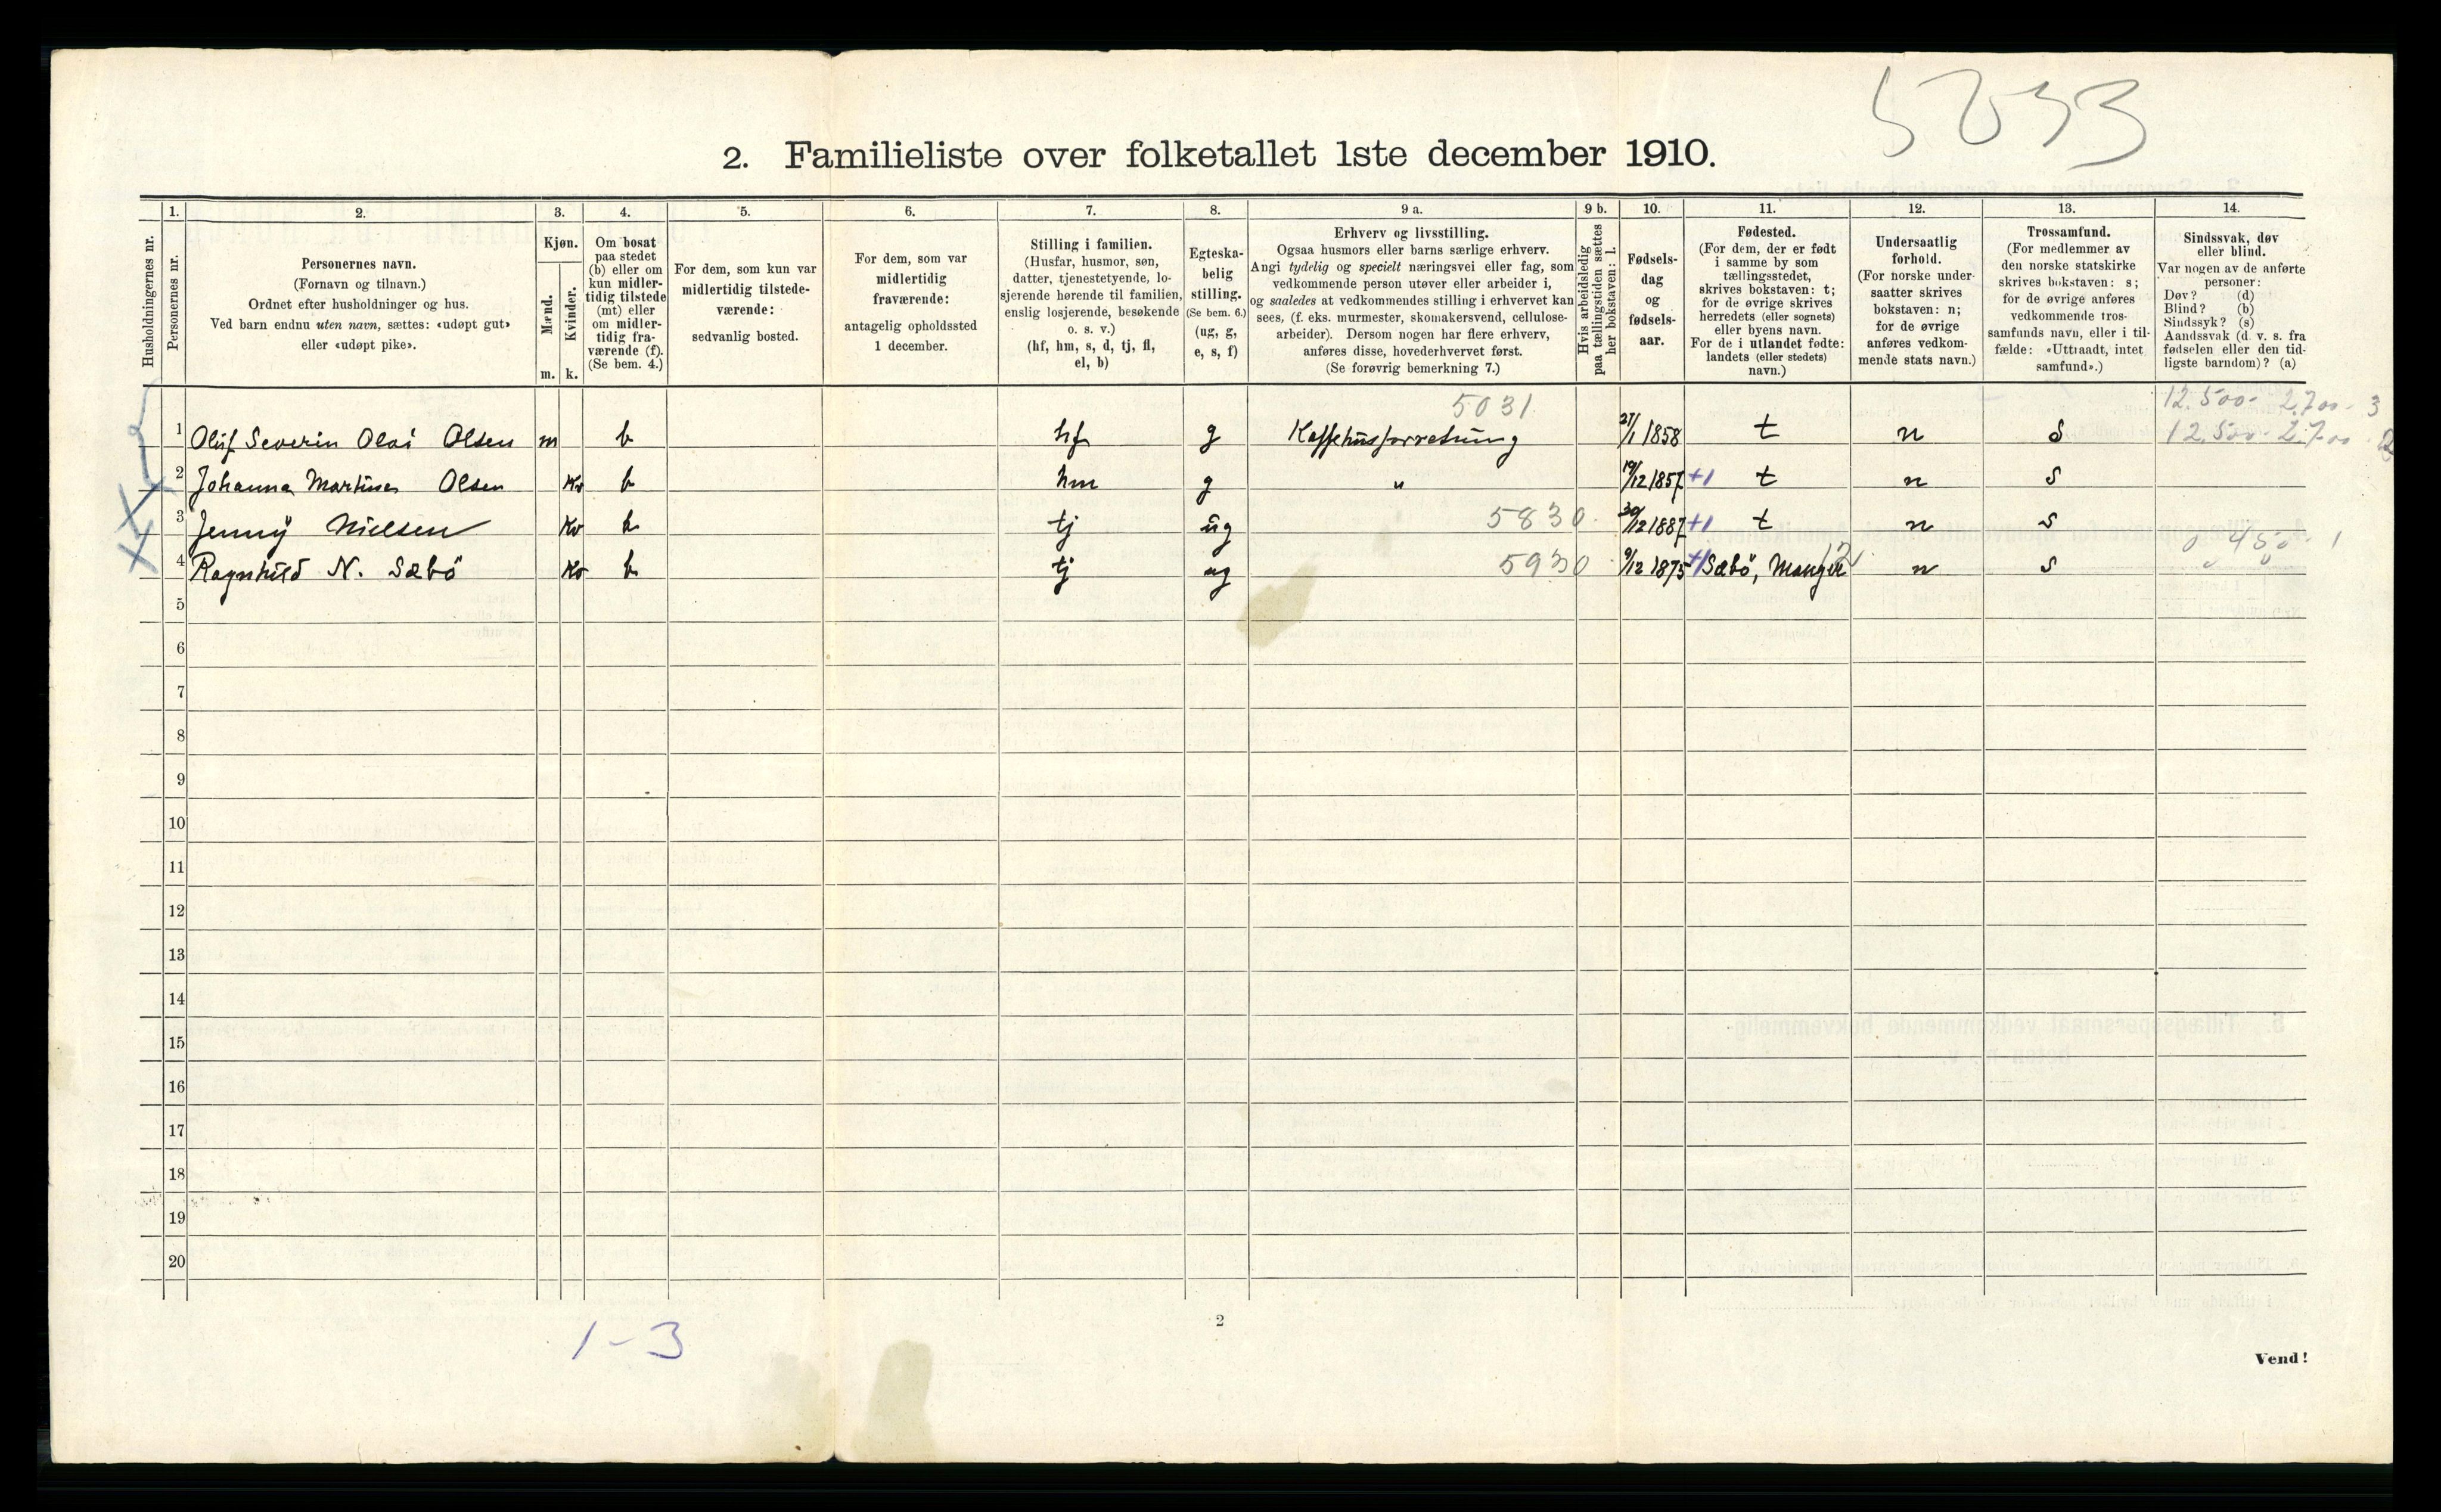 5833
2. Familieliste over folketallet 1ste december 1910.
Husholdningernes nr.
1.
Personernes nr.
2.
Personernes navn.
(Fornavn og tilnavn.)
Ordnet efter husholdninger og hus.
Ved barn endnu uten navn, sættes: «udøpt gut»
eller «udøpt pike».
3.
Kjøn.
Mænd.
Kvinder.
m. k.
4.
Om bosat
paa stedet
(b) eller om
kun midler-
tidig tilstede
(mt) eller
om midler-
tidig fra-
værende (f).
(Se bem. 4.)
5.
For dem, som kun var
midlertidig tilstede-
værende:
sedvanlig bosted.
6.
For dem, som var
midlertidig
fraværende:
antagelig opholdssted
1 december.
7.
Stilling i familien.
(Husfar, husmor, søn,
datter, tjenestetyende, lo-
sjerende hørende til familien,
enslig losjerende, besøkende
o. s. v.)
(hf, hm, s, d, tj, fl,
el, b)
8.
Egteska-
belig
stilling.
(Se bem. 6.)
(ug, g,
e, s, f)
9 a.
Erhverv og livsstilling.
Ogsaa husmors eller barns særlige erhverv.
Angi tydelig og specielt næringsvei eller fag, som
vedkommende person utøver eller arbeider i,
og saaledes at vedkommendes stilling i erhvervet kan
sees, (f. eks. murmester, skomakersvend, cellulose-
arbeider). Dersom nogen har flere erhverv,
anføres disse, hovederhvervet først.
(Se forøvrig bemerkning 7.)
9 b.
Hvis arbeidsledig
paa tællingstiden sættes
her bokstaven: l.
10.
Fødsels-
dag
og
fødsels-
aar.
11.
Fødested.
(For dem, der er født
i samme by som
tællingsstedet,
skrives bokstaven: t;
for de øvrige skrives
herredets (eller sognets)
eller byens navn.
For de i utlandet fødte:
landets (eller stedets)
navn.)
12.
Undersaatlig
forhold.
(For norske under-
saatter skrives
bokstaven: n;
for de øvrige
anføres vedkom-
mende stats navn.)
13.
Trossamfund.
(For medlemmer av
den norske statskirke
skrives bokstaven: s;
for de øvrige anføres
vedkommende tros-
samfunds navn, eller i til-
fælde: «Uttraadt, intet
samfund».)
14.
Sindssvak, døv
eller blind.
Var nogen av de anførte
personer:
Døv? (d)
Blind? (b)
Sindssyk? (s)
Aandssvak (d. v. s. fra
fødselen eller den tid-
ligste barndom)? (a)
5031 12.500- 2.700- 3
1 Oluf Severin Olai Olsen m b hf g Kaffehusforretning 27/1 1858 t n s 12.500- 2.700-
2 Johanna Martinea Olsen Kv b hm g " 19/12 1857 +1 t n s
3 Jenny Nielsen Kv b tj ug 5830 30/12 1887 +1 t n s
0 450- 1
4 Ragnhild N. Sæbö Kv b tj ug 5930 9/12 1875 +1 Sæbö, Manger 12 n s
5
6
7
8
9
10
11
12
13
14
15
16
17
18
19
20
1-3
2
Vend!